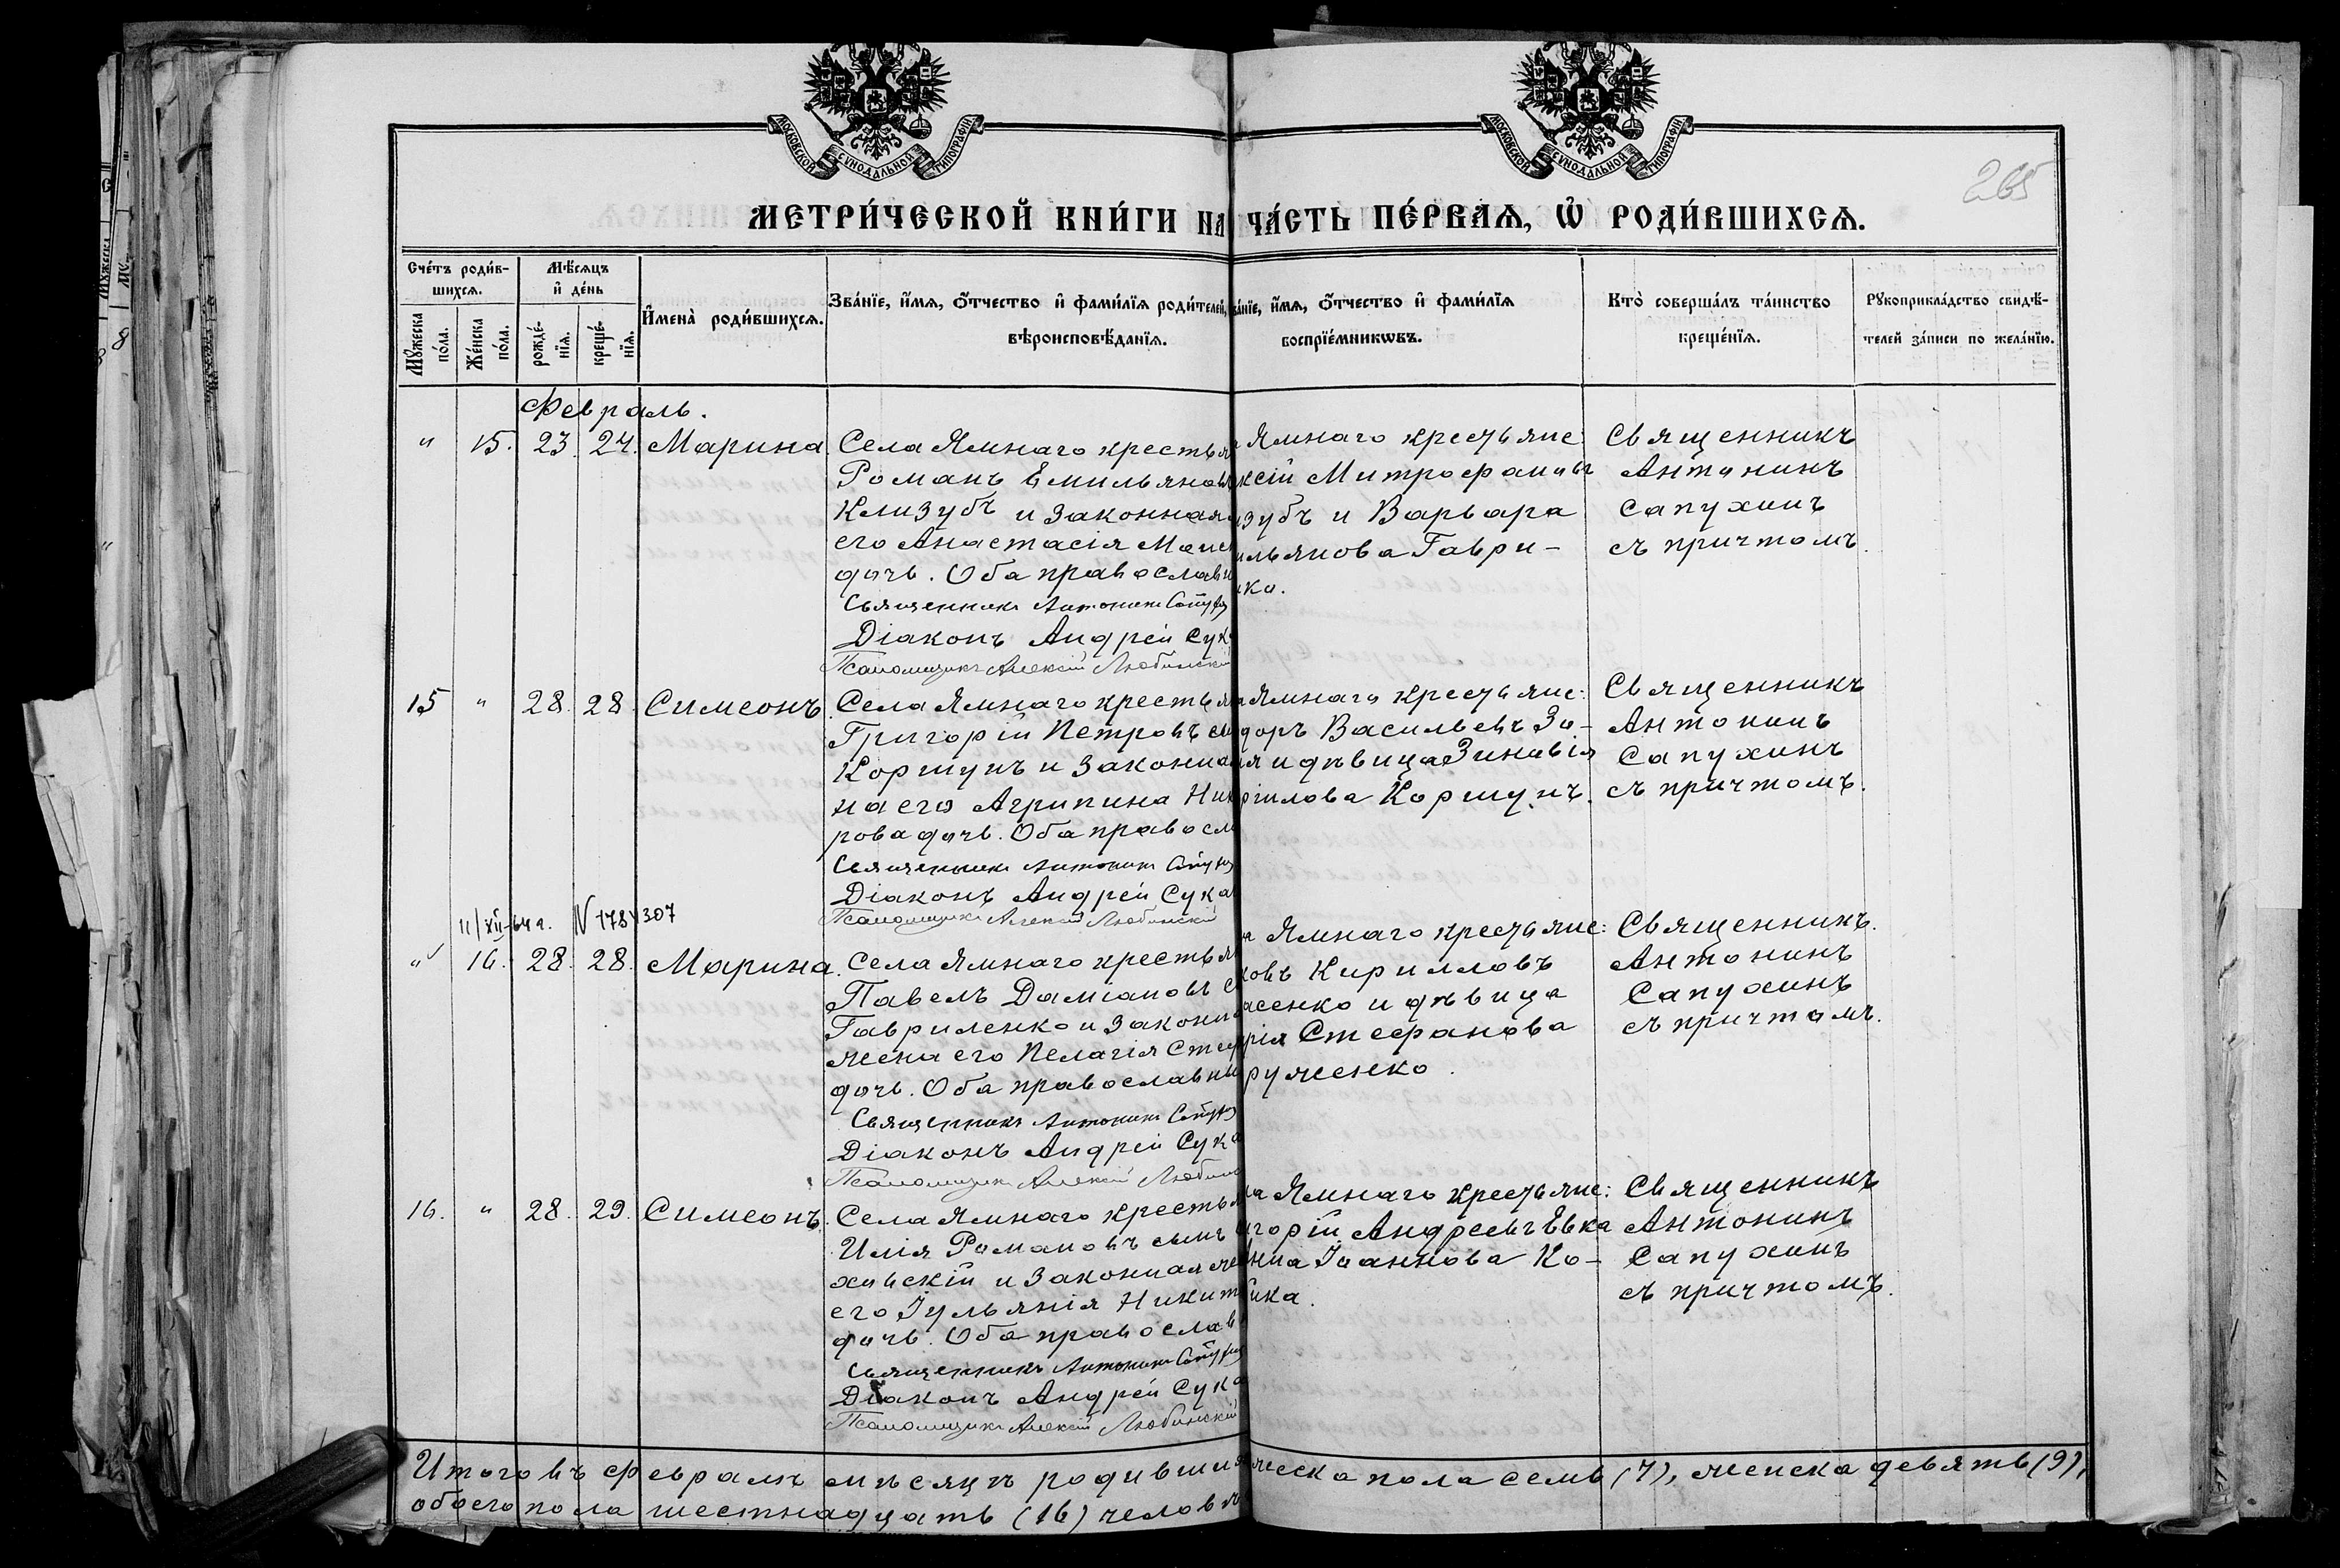 МОСКОВСКОЙ СУНОДАЛЬНОЙ ТИПОГРАФІИ
МОСКОВСКОЙ СУНОДАЛЬНОЙ ТИПОГРАФІИ
265
МЕТРИ́ЧЕСКОЙ КНИ́ГИ НА ЧА́СТЬ ПЕ́РВАѦ, Ѡ҆ РОДИ́ВШИХСѦ.
Сче́тъ роди́в-
шихсѧ.
Мꙋ́жеска по́ла.
Же́нска по́ла.
Мѣ́сѧцъ
и҆ де́нь
рожде́-
нїѧ.
креще́-
нїѧ.
И҆мена̀ роди́вшихсѧ.
Зва́нїе, и҆́мѧ, ѻ҆́тчество и҆ фами́лїѧ роди́телей,
вѣроисповѣ́данїѧ.
ва́нїе, и҆́мѧ, ѻ҆́тчество и҆ фами́лїѧ
воспрїе́мникѡвъ.
Кто̀ соверша́лъ та́инство
креще́нїѧ.
Рꙋкоприкла́дство свидѣ́-
телей за́писи по жела́нїю.
Февраль.
" 15. 23. 24. Марина.
Села Ямнаго крестья
Романъ Емильяновъ
Клизубъ и законная
его Анастасія Моис
дочь. Оба православн
Священникъ Антонинъ Сапух
Діаконъ Андрей Сук
Псаломщикъ Алексій Любинскій
Ямнаго крестьяне:
ксій Митрофановъ
изубъ и Варвара
ильянова Гаври-
ко.
Священникъ
Антонинъ
Сапухинъ
съ причтомъ.
15 " 28. 28. Симеонъ.
Села Ямнаго крестья
Григорій Петровъ сы
Коршунъ и законна
на его Агрипина Ник
рова дочь. Оба правосл
Священникъ Антонинъ Сапух
Діаконъ Андрей Сука
Псаломщикъ Алексій Любинскій
а Ямнаго крестьяне:
доръ Васильевъ Зо-
я и дѣвица Зиновія
рилова Коршунъ.
Священникъ
Антонинъ
Сапухинъ
съ причтомъ.
11/XII-64 г. N 178307
" 16. 28. 28. Марина.
Села Ямнаго крестья
Павелъ Даміановъ с
Гавриленко и законн
жена его Пелагія Стеф
дочь. Оба православны
Священникъ Антонинъ Сапух
Діаконъ Андрей Сука
Псаломщикъ Алексій Любинс
а Ямнаго крестьяне:
ковъ Кирилловъ
асенко и дѣвица
рія Стефанова
руженко.
Священникъ
Антонинъ
Сапухинъ
съ причтомъ.
16. " 28. 29. Симеонъ.
Села Ямнаго крестья
Илія Романовъ сынъ
ховскій и законная же
его Іульянія Никит
дочь. Оба православ
Священникъ Антонинъ Сапух
Діаконъ Андрей Сука
Псаломщикъ Алексій Любинскій
ла Ямнаго крестьяне:
игорій Андреевъ Евка
нна Іоаннова Ко-
йка.
Священникъ
Антонинъ
Сапухинъ
съ причтомъ.
Итого въ февралѣ мѣсяцѣ родивши жеска пола семь (7), женска девять (9),
обоего пола шестнадцать (16) человѣ